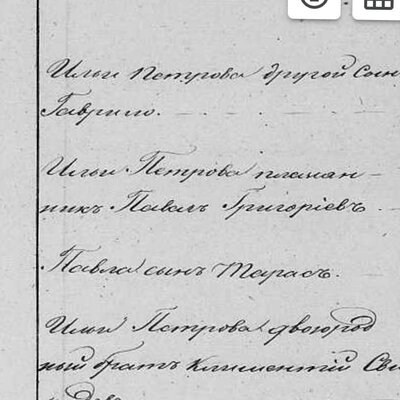 Ильи Петрова другой сын
Гаврило.
Ильи Петрова племян-
никъ Павелъ Григоріевъ.
Павла сынъ Тарасъ.
Ильи Петрова двоюрод
ный братъ Климентій